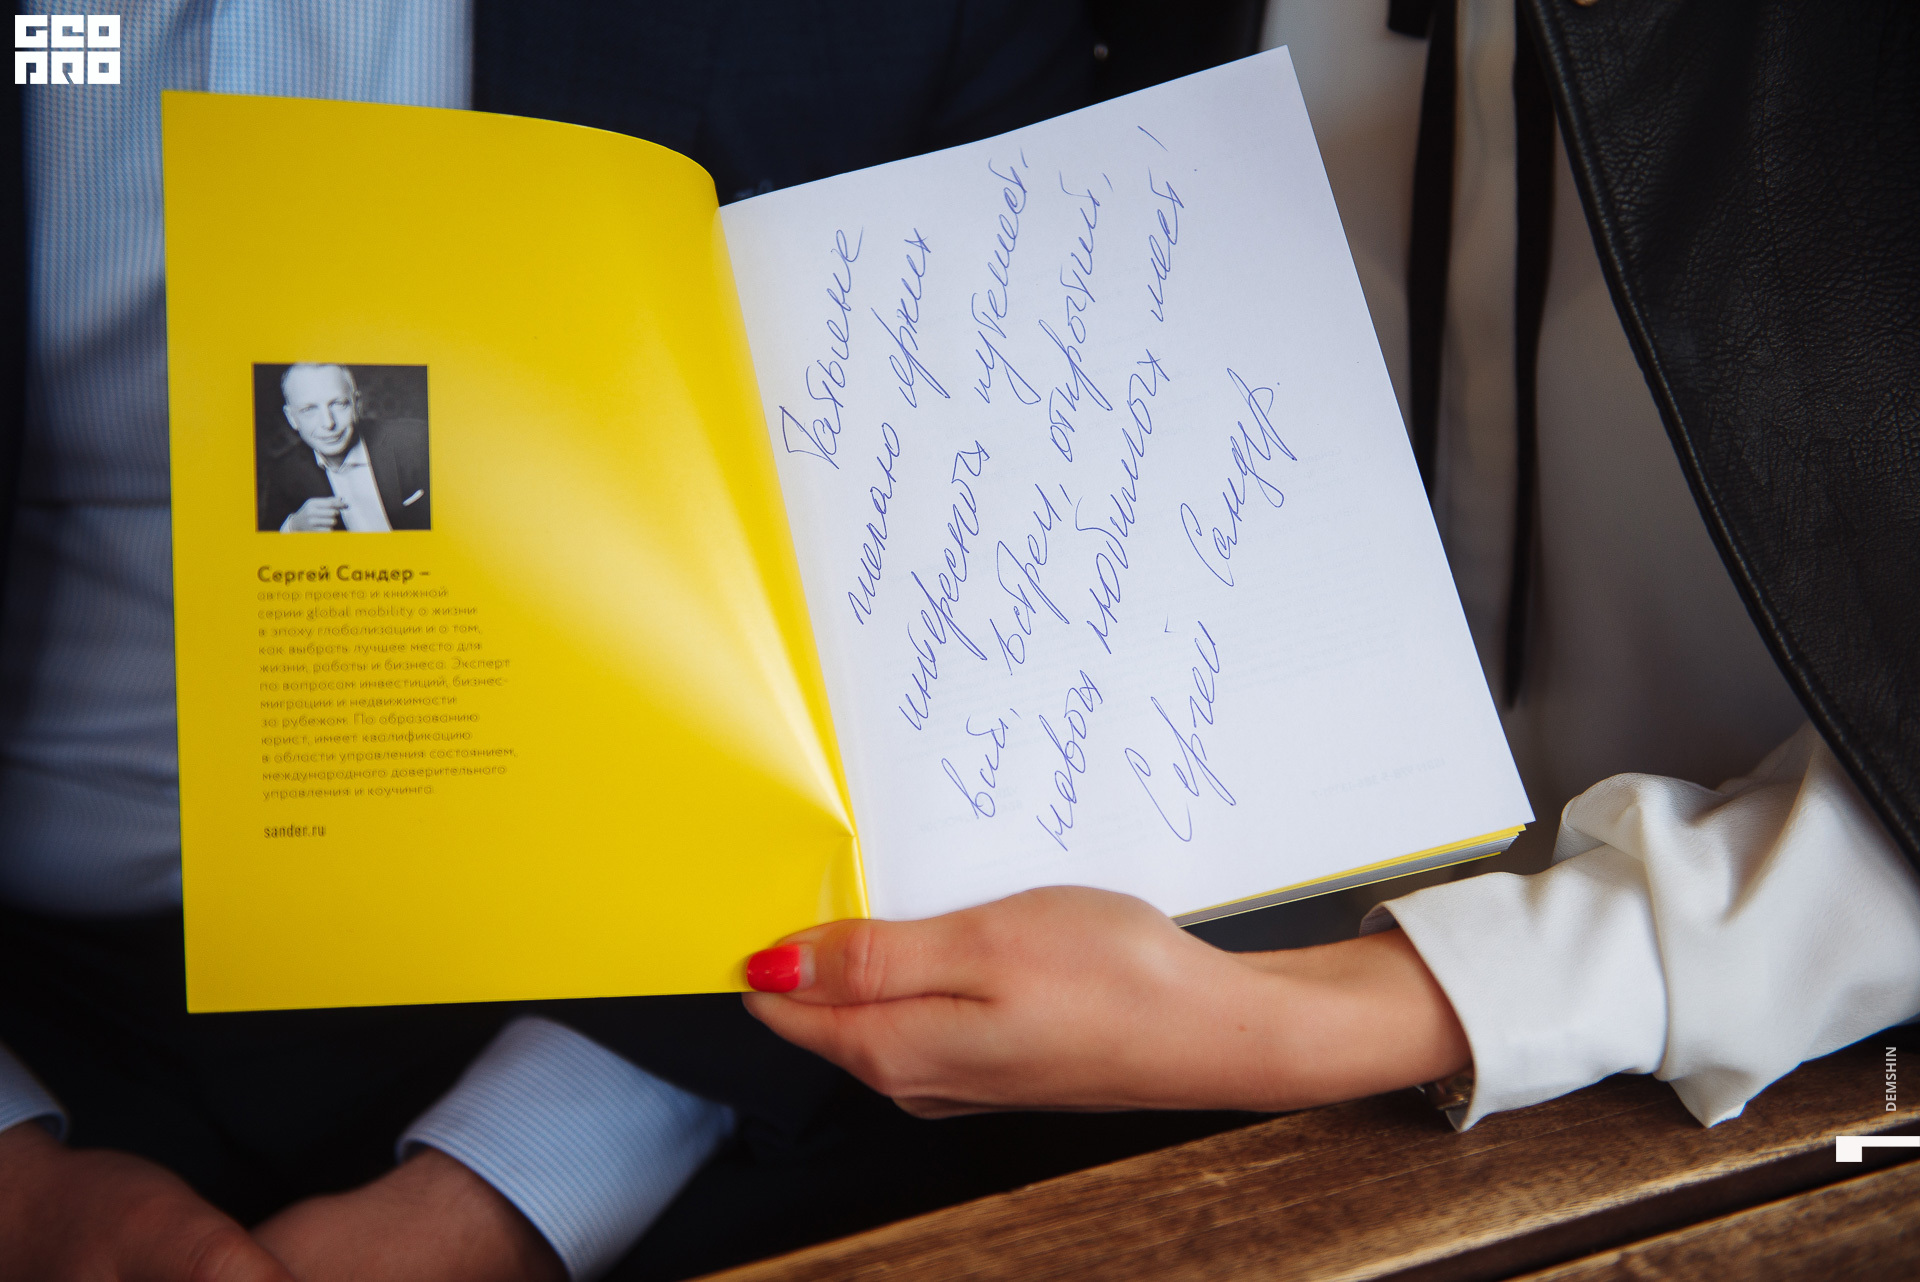 GEO
PRO
Сергей Сандер –
автор проекта и книжной
серии global mobility о жизни
в эпоху глобализации и о том,
как выбрать лучшее место для
жизни, работы и бизнеса. Эксперт
по вопросам инвестиций, бизнес-
миграции и недвижимости
за рубежом. По образованию
юрист, имеет квалификацию
в области управления состоянием,
международного доверительного
управления и коучинга.
sander.ru
Татьяне
желаю ярких
интересных путешест-
вий, встреч, открытий,
новых любимых мест!
Сергей Сандер.
DEMSHIN